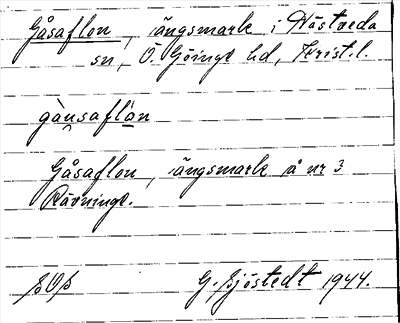 Gåsaflon, ängsmark i Hästveda
sn, Ö. Göinge hd, Krist. l.
gåusaflån
Gåsaflon, ängsmark å nr 3
Rävninge.
G. Sjöstedt 1944.